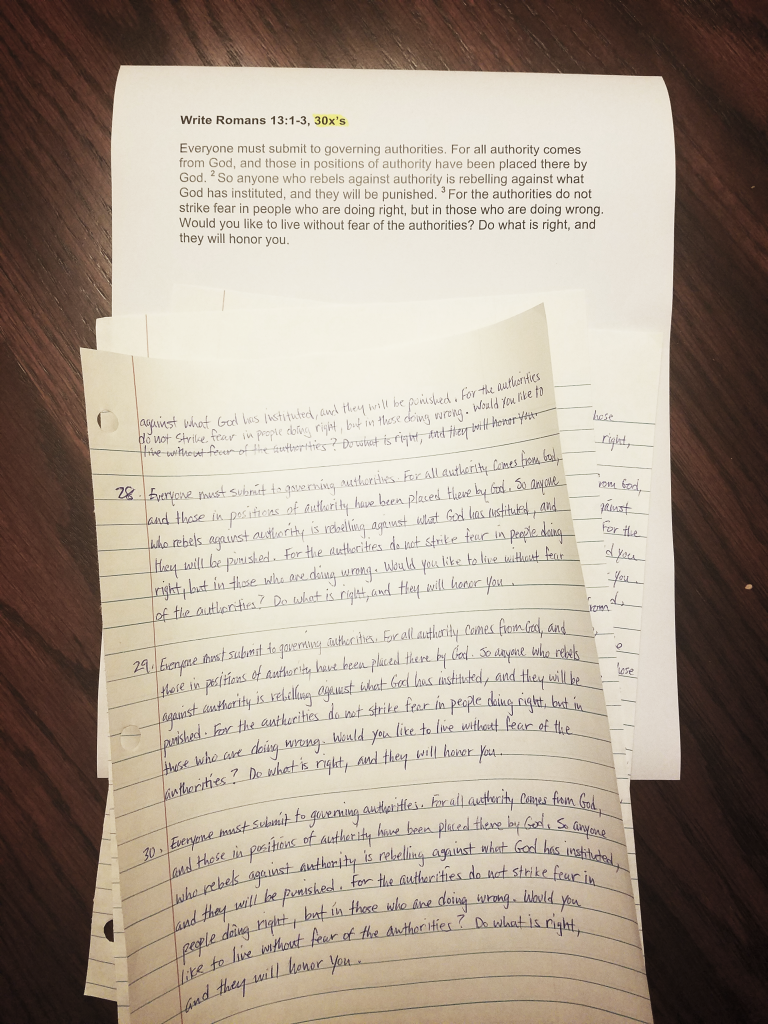 Write Romans 13:1-3, 30x's
Everyone must submit to governing authorities. For all authority comes
from God, and those in positions of authority have been placed there by
God. 2 So anyone who rebels against authority is rebelling against what
God has instituted, and they will be punished. 3 For the authorities do not
strike fear in people who are doing right, but in those who are doing wrong.
Would you like to live without fear of the authorities? Do what is right, and
they will honor you.
against what God has instituted, and they will be punished. For the authorities
do not strike fear in people doing right, but in those doing wrong. Would you like to
live without fear of the authorities? Do what is right, and they will honor you.
28. Everyone must submit to governing authorities. For all authority comes from God,
and those in positions of authority have been placed there by God. So anyone
who rebels against authority is rebelling against what God has instituted, and
they will be punished. For the authorities do not strike fear in people doing
right, but in those who are doing wrong. Would you like to live without fear
of the authorities? Do what is right, and they will honor you.
29. Everyone must submit to governing authorities. For all authority comes from God, and
those in positions of authority have been placed there by God. So anyone who rebels
against authority is rebelling against what God has instituted, and they will be
punished. For the authorities do not strike fear in people doing right, but in
those who are doing wrong. Would you like to live without fear of the
authorities? Do what is right, and they will honor you.
30. Everyone must submit to governing authorities. For all authority comes from God,
and those in positions of authority have been placed there by God. So anyone
who rebels against authority is rebelling against what God has instituted,
and they will be punished. For the authorities do not strike fear in
people doing right, but in those who are doing wrong. Would you
like to live without fear of the authorities? Do what is right,
and they will honor you.
hose
right,
rom God,
gainst
For the
d you
you.